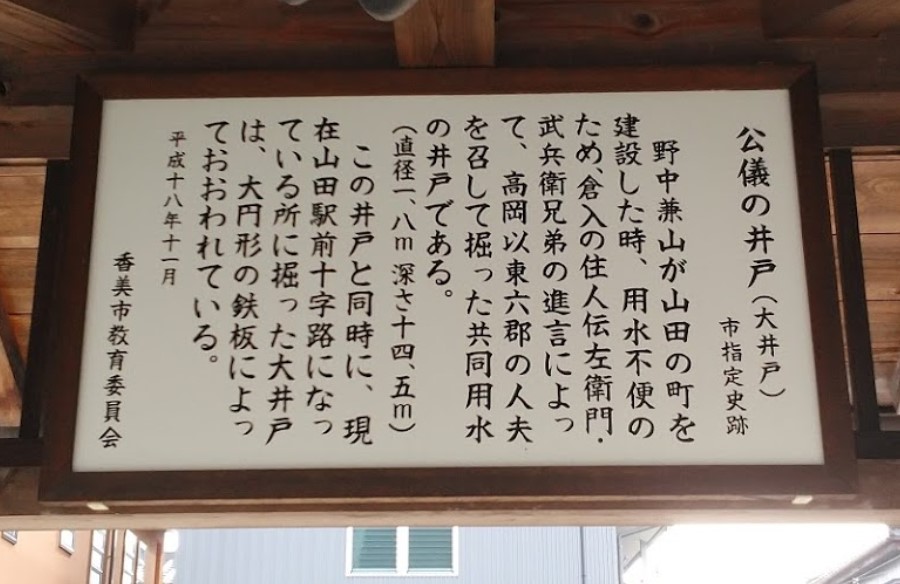 公儀の井戸（大井戸）
市指定史跡
野中兼山が山田の町を
建設した時、用水不便の
ため、倉入の住人伝左衛門・
武兵衛兄弟の進言によっ
て、高岡以東六郡の人夫
を召して掘った共同用水
の井戸である。
（直径一、八m 深さ十四、五m）
この井戸と同時に、現
在山田駅前十字路になっ
ている所に掘った大井戸
は、大円形の鉄板によっ
ておおわれている。
平成十八年十一月
香美市教育委員会